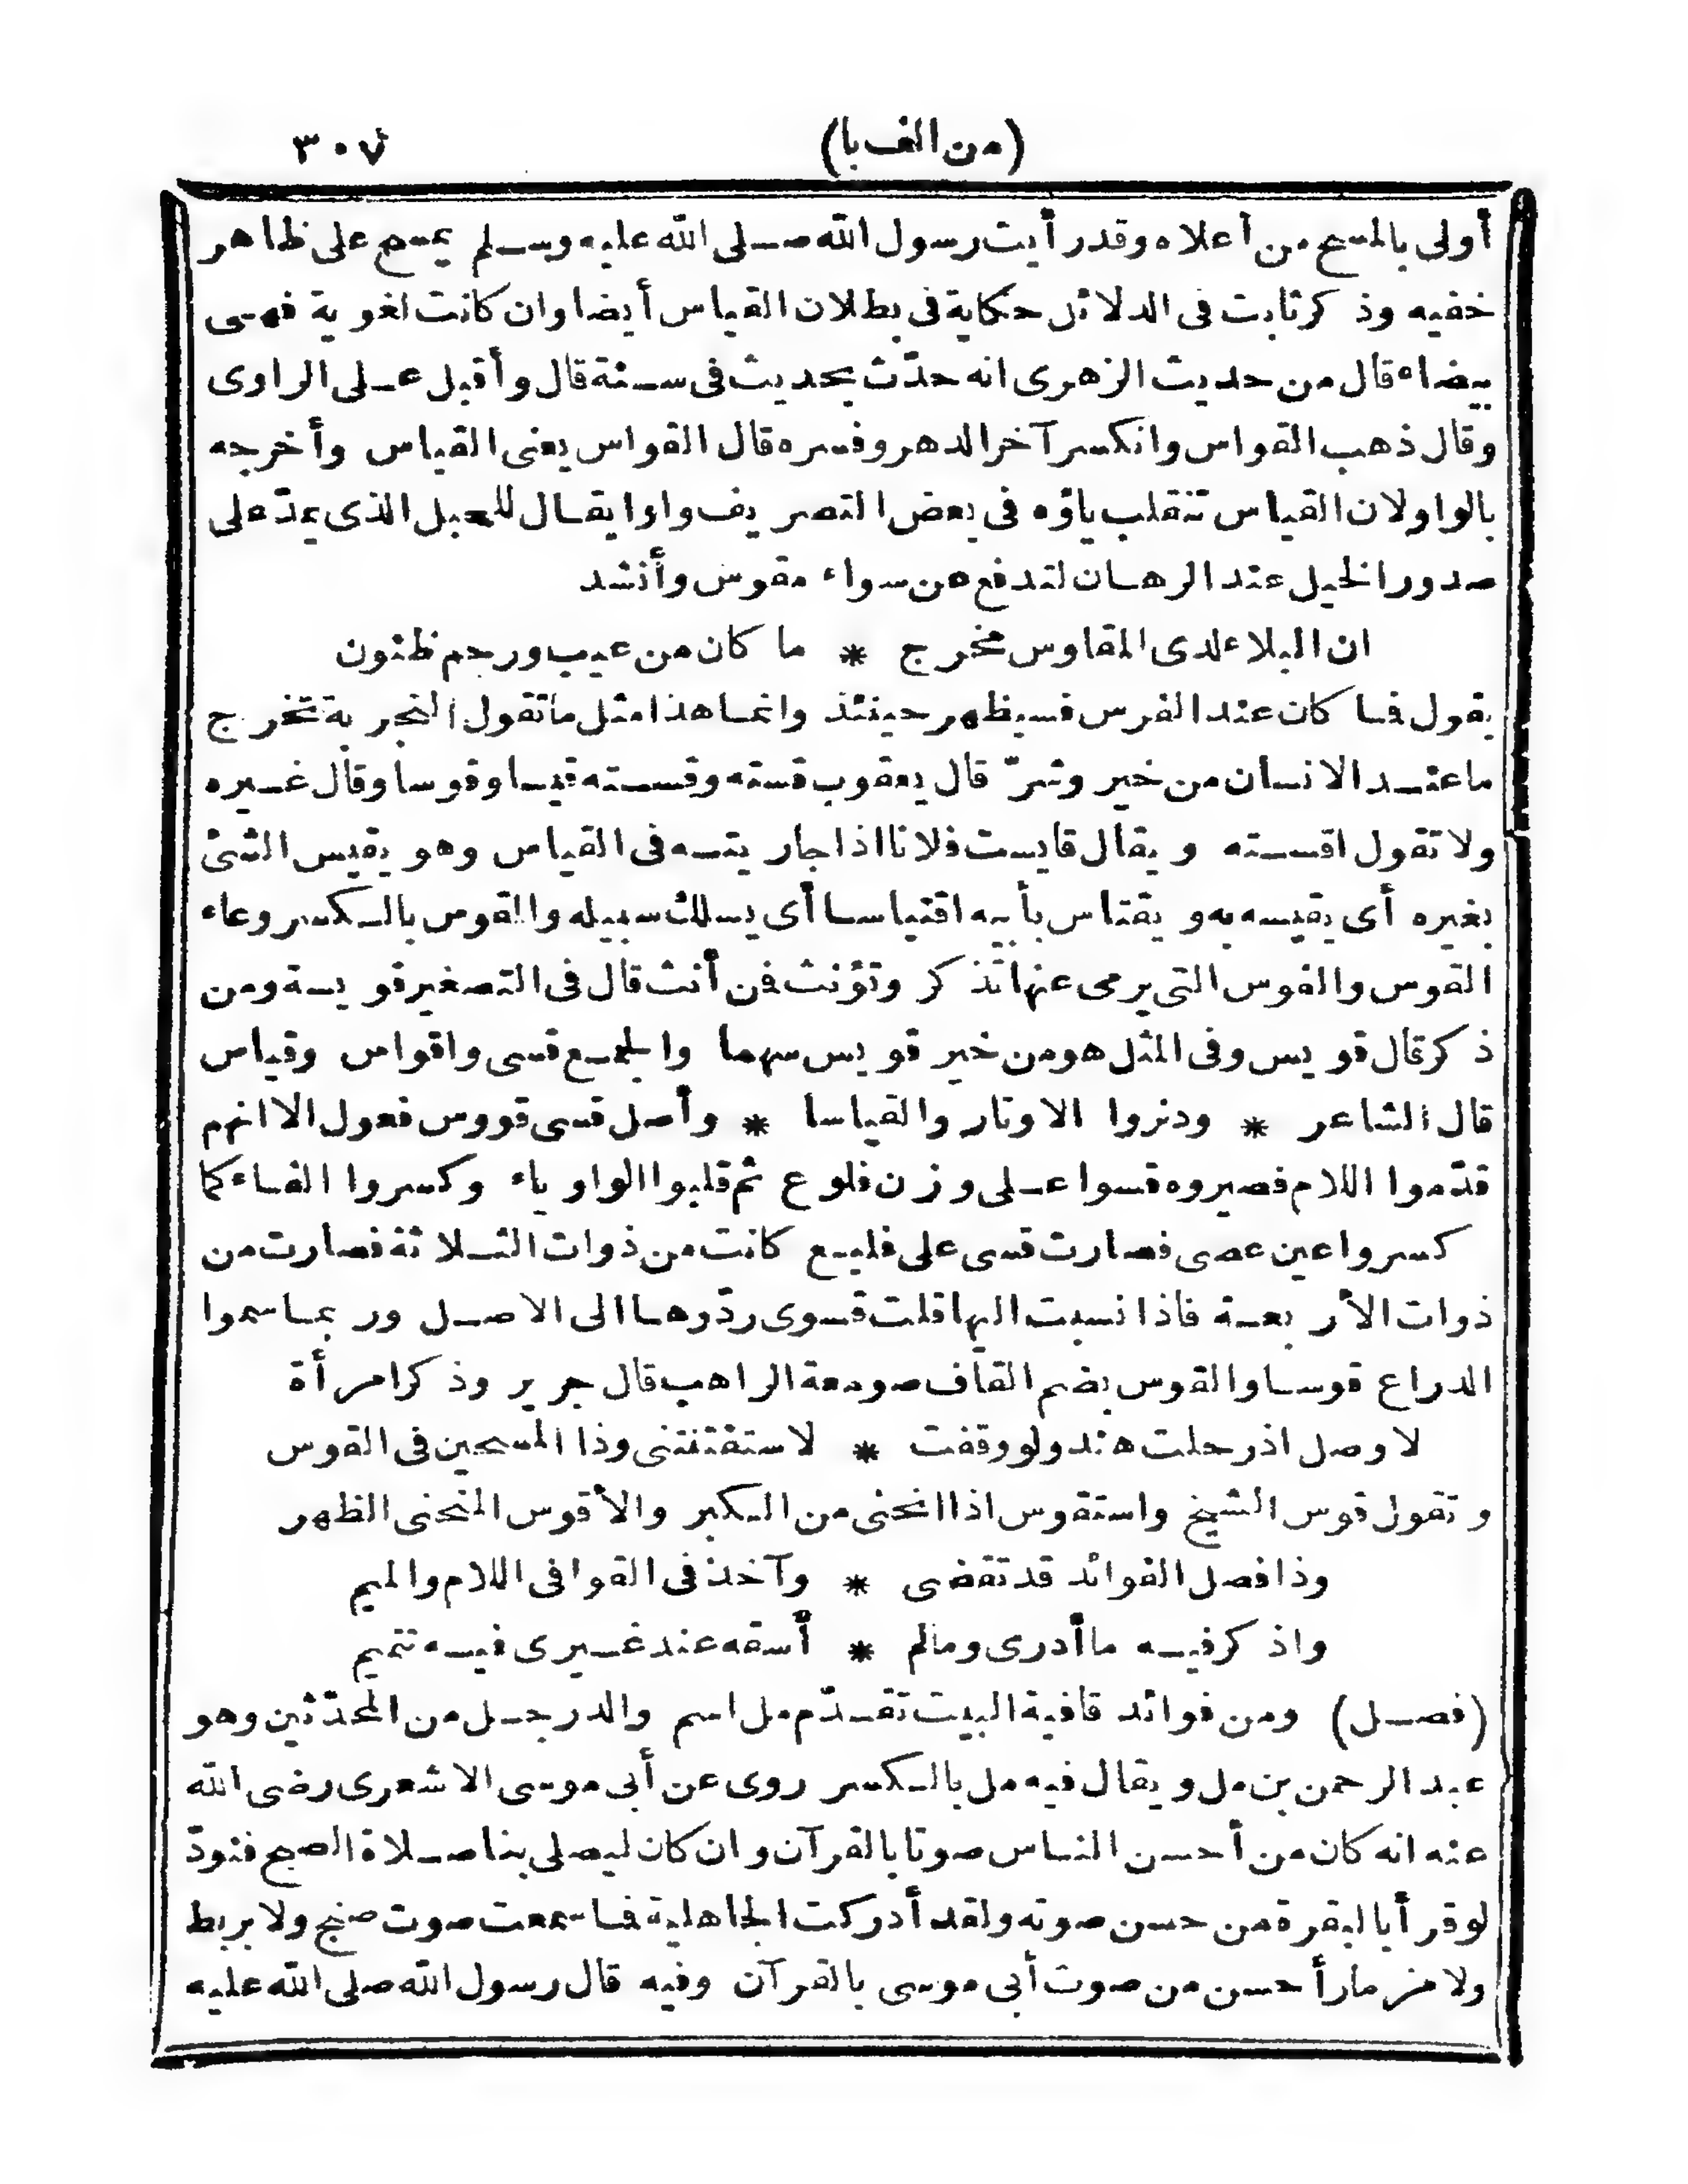 (من الف با) ٣٠٧
أولى بالمسح من أعلاه وقد رأيت رسول الله صلى الله عليه وسلم يمسح على ظاهر
خفيه وذكر ثابت فى الدلائل حكاية فى بطلان القياس أيضا وان كانت لغوية فهى
بيضاء قال من حديث الزهرى انه حدّث بحديث فى سنة قال وأقبل على الراوى
وقال ذهب القواس وانكسر آخر الدهر وفسره قال القواس يعنى القياس وأخرجه
بالواو لان القياس تنقلب ياؤه فى بعض التصريف واوا يقال للحبل الذى يمدّ على
صدور الخيل عند الرهان لتدفع من سواء مقوس وأنشد
ان البلاء لدى المقاوس مخرج * ما كان من عيب ورجم ظنون
يقول فما كان عند الفرس فسيظهر حينئذ وانما هذا مثل ما تقول التجربة تخرج
ما عند الانسان من خير وشرّ قال يعقوب قسته وقسته قيسا وقوسا وقال غيره
ولا تقول اقسته ويقال قايست فلانا اذا جاريته فى القياس وهو يقيس الشئ
بغيره أى يقيسه به ويقتاس بأبيه اقتياسا أى يسلك سبيله والقوس بالكسر وعاء
القوس والقوس التى يرمى عنها تذكر وتؤنث فمن أنث قال فى التصغير قويسة ومن
ذكر قال قويس وفى المثل هو من خير قويس سهما والجمع قسى واقواس وقياس
قال الشاعر * ودنروا الاوتار والقياسا * وأصل قسى قووس فعول الا انهم
قدّموا اللام فصيروه قسوا على وزن فلوع ثم قلبوا الواو ياء وكسروا الفاء كما
كسروا عين عصى فصارت قسى على فليع كانت من ذوات الثلاثة فصارت من
ذوات الأربعة فاذا نسبت اليها قلت قسوى ردّوها الى الاصل وربما سموا
الدراع قوسا والقوس بضم القاف صومعة الراهب قال جرير وذكر امرأة
لا وصل اذ رحلت هند ولو وقفت * لاستفتنتنى وذا المسحين فى القوس
وتقول قوس الشيخ واستقوس اذا انحنى من الكبر والأقوس المنحنى الظهر
وذا فصل الفوائد قد تقضى * وآخذ فى القوافى اللام والميم
واذكر فيه ما أدرى وما لم * أسقه عند غيرى فيه تتميم
(فصل) ومن فوائد قافية البيت تقدّم مل اسم والد رجل من المحدّثين وهو
عبد الرحمن بن مل ويقال فيه مل بالكسر روى عن أبى موسى الاشعرى رضى الله
عنه انه كان من أحسن الناس صوتا بالقرآن وان كان ليصلى بنا صلاة الصبح فنودّ
لو قرأ بالبقرة من حسن صوته ولقد أدركت الجاهلية فما سمعت صوت صنج ولا بربط
ولا مزمار أحسن من صوت أبى موسى بالقرآن وفيه قال رسول الله صلى الله عليه